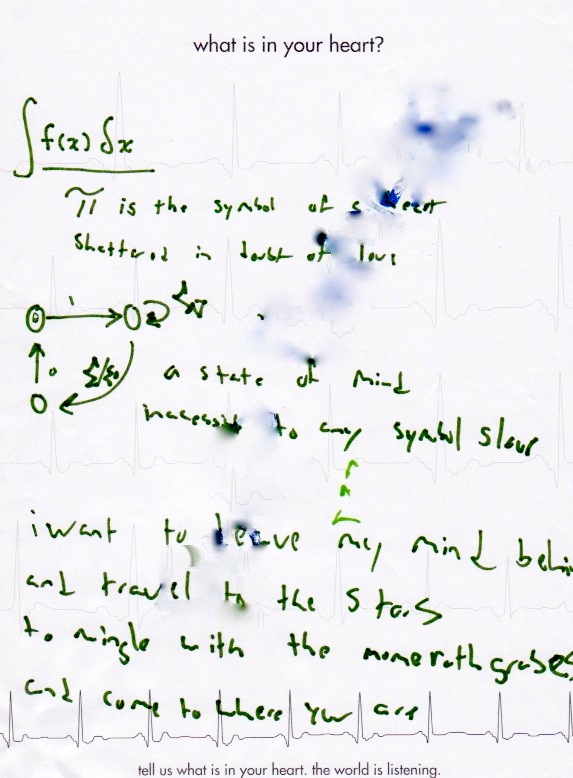 what is in your heart?
∫ f(x) δx
π is the symbol of a heart
shattered in doubt of love
1
0
a state of mind
to any symbol slave
i want to leave my mind
and travel to the stars
to mingle with the
and come to where you are
tell us what is in your heart. the world is listening.